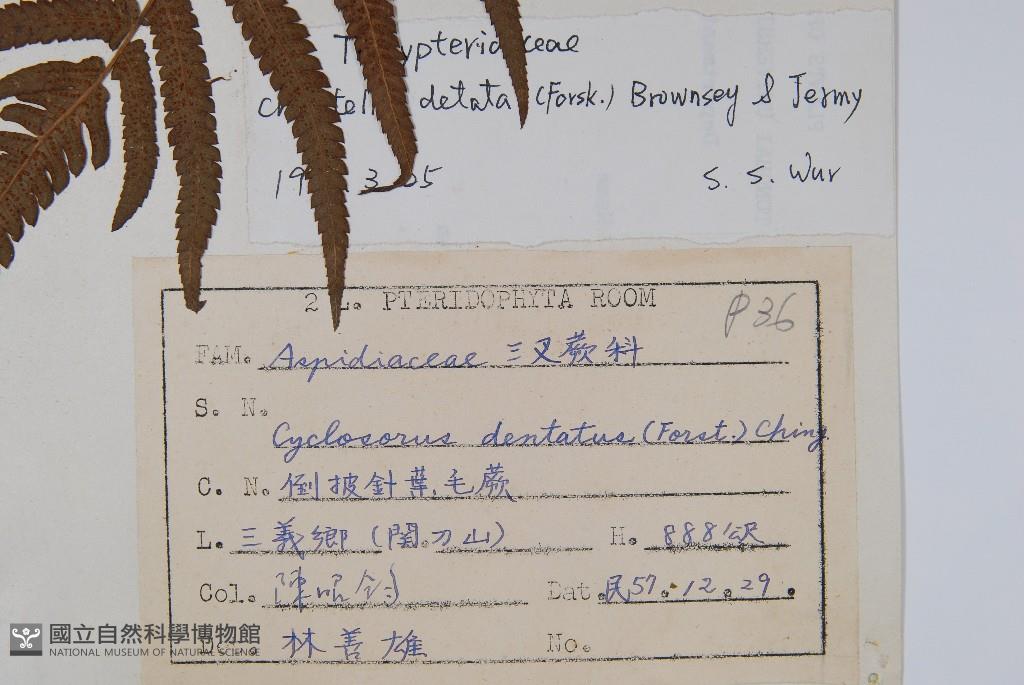 detata (Forsk.) Brownsey & Jermy
S. S. Wur
2 L. PTERIDOPHYTA ROOM
P36
FAM. Aspidiaceae 三叉蕨科
S. N.
Cyclosorus dentatus (Forst.) Ching
C. N. 倒披針葉毛蕨
L. 三義鄉 (関刀山) H. 888公尺
Col. 陳昭 Dat. 民57.12.29.
林善雄 No.
國立自然科學博物館
NATIONAL MUSEUM OF NATURAL SCIENCE